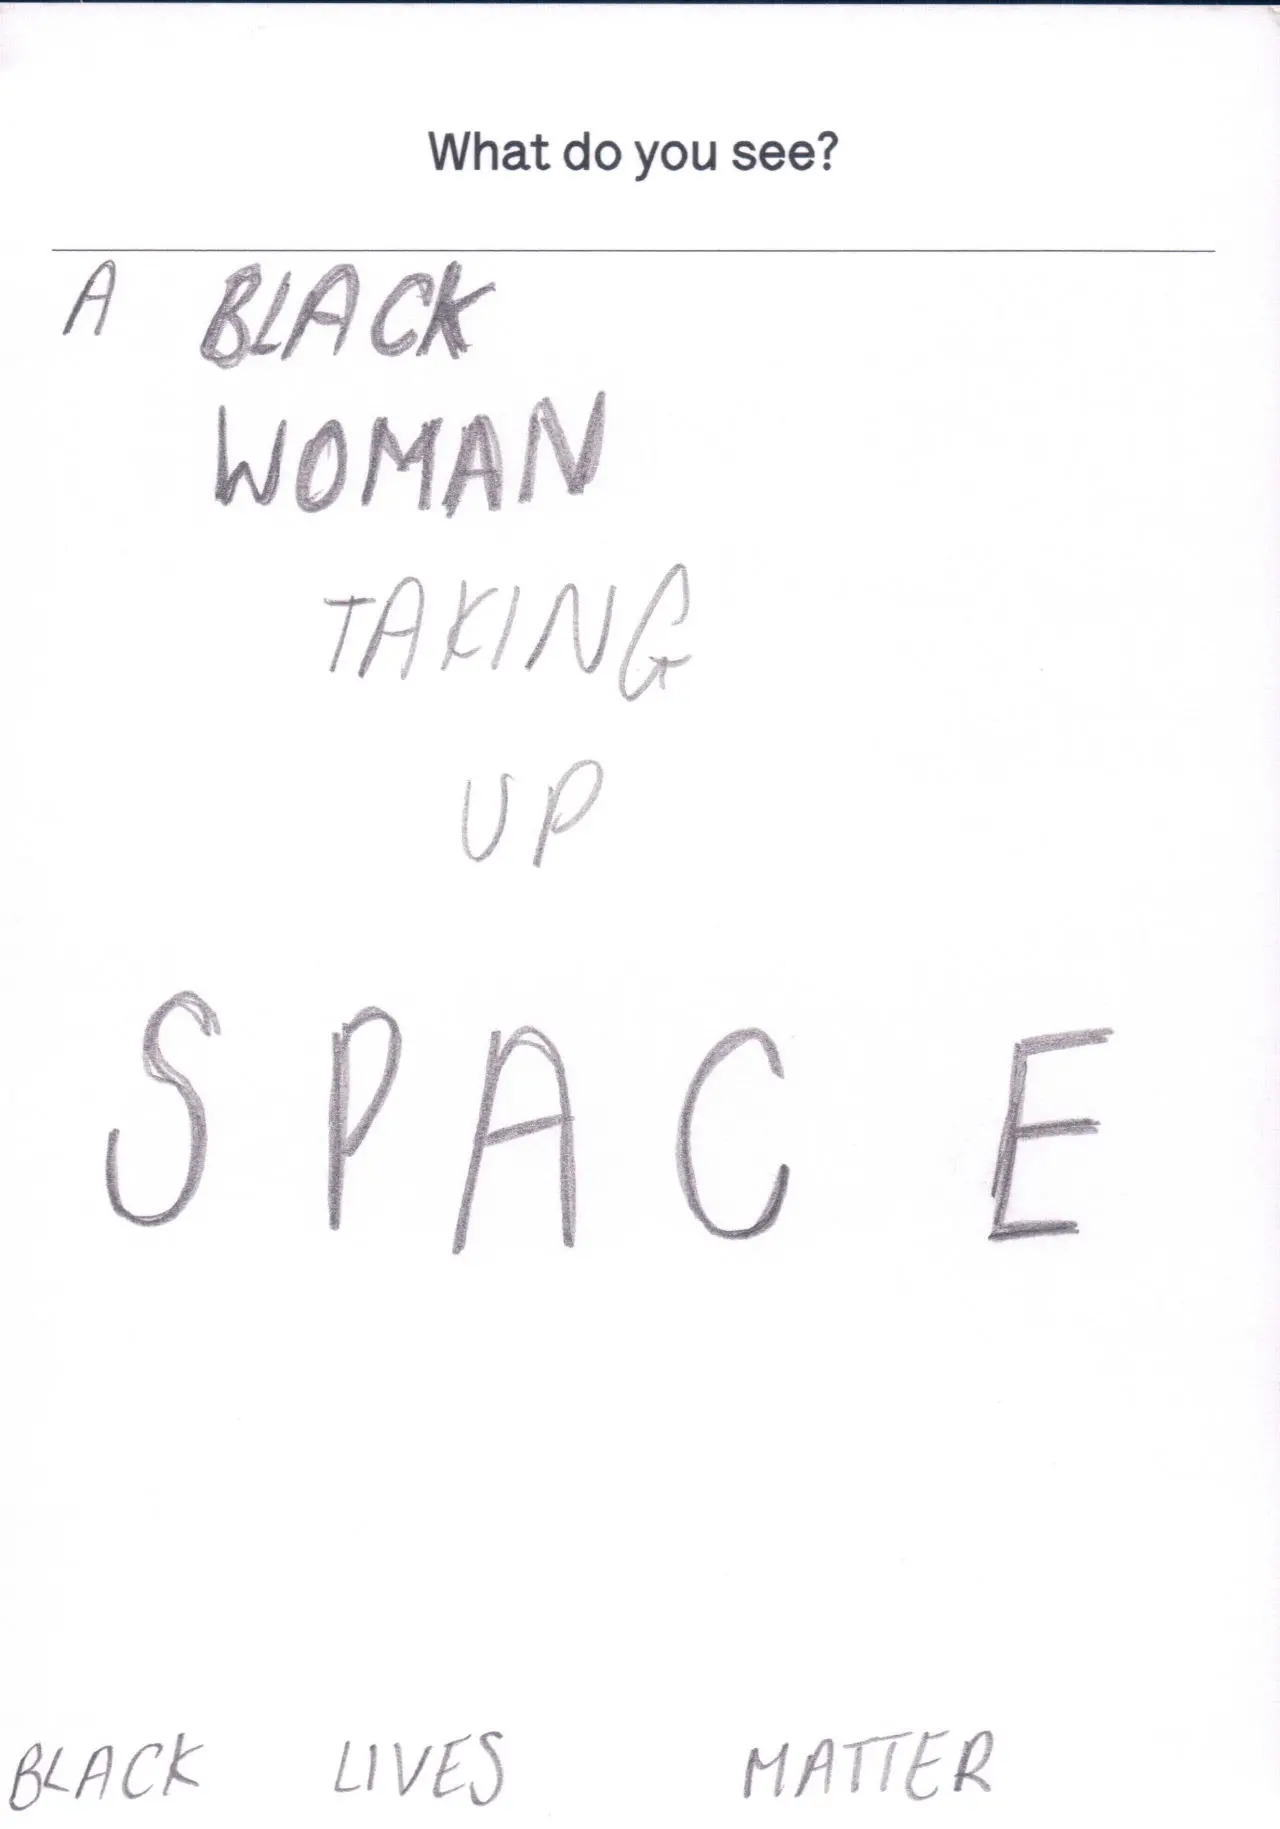 What do you see?
A BLACK
WOMAN
TAKING
UP
SPACE
BLACK LIVES MATTER